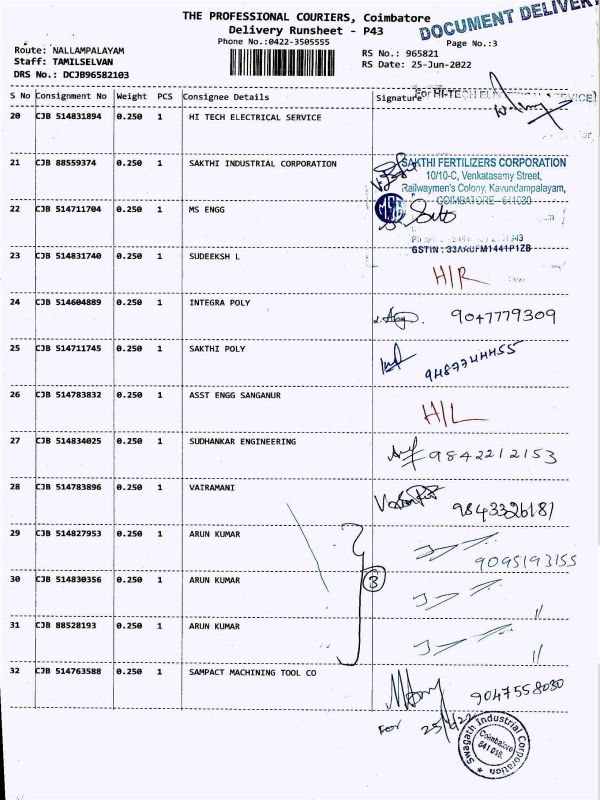 THE PROFESSIONAL COURIERS, Coimbatore
DOCUMENT DELIVERY
Delivery Runsheet - P43
Phone No.:0422-3505555
Page No.:3
Route: NALLAMPALAYAM
RS No.: 965821
Staff: TAMILSELVAN
RS Date: 25-Jun-2022
DRS No.: DCJB96582103
S No Consignment No Weight PCS Consignee Details Signature
For HI-TECH
20 CJB 514831894 0.250 1 HI TECH ELECTRICAL SERVICE
21 CJB 88559374 0.250 1 SAKTHI INDUSTRIAL CORPORATION
SAKTHI FERTILIZERS CORPORATION
10/10-C, Venkatasamy Street,
Railwaymen's Colony, Kavundampalayam,
COIMBATORE - 641030
22 CJB 514711704 0.250 1 MS ENGG
GSTIN : 33AAUFM1441P1ZB
23 CJB 514831740 0.250 1 SUDEEKSH L H/R
24 CJB 514604889 0.250 1 INTEGRA POLY 9047779309
25 CJB 514711745 0.250 1 SAKTHI POLY 9487744455
26 CJB 514783832 0.250 1 ASST ENGG SANGANUR H/L
27 CJB 514834025 0.250 1 SUDHANKAR ENGINEERING 9842212153
28 CJB 514783896 0.250 1 VAIRAMANI 9843326181
29 CJB 514827953 0.250 1 ARUN KUMAR 9095193155
30 CJB 514830356 0.250 1 ARUN KUMAR 3 11
31 CJB 88528193 0.250 1 ARUN KUMAR 11
32 CJB 514763588 0.250 1 SAMPACT MACHINING TOOL CO 9047558030
For
Swagath Industrial Corporation
Coimbatore
641 018.